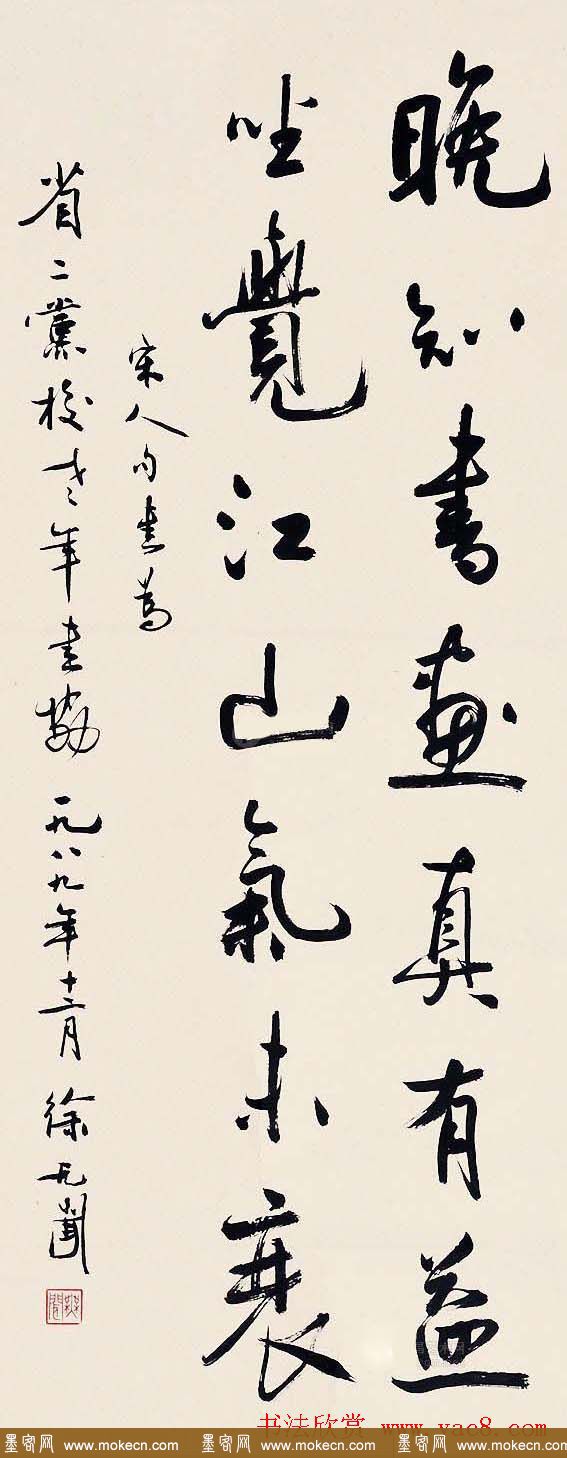 晚知書畫真有益
坐覺江山氣未衰
宋人句書為
省二黨校老年書協 一九八九年十二月 徐无聞
书法欣赏 www.yac8.com
墨客网 www.mokecn.com 墨客网 www.mokecn.com 墨客网 www.mokecn.com